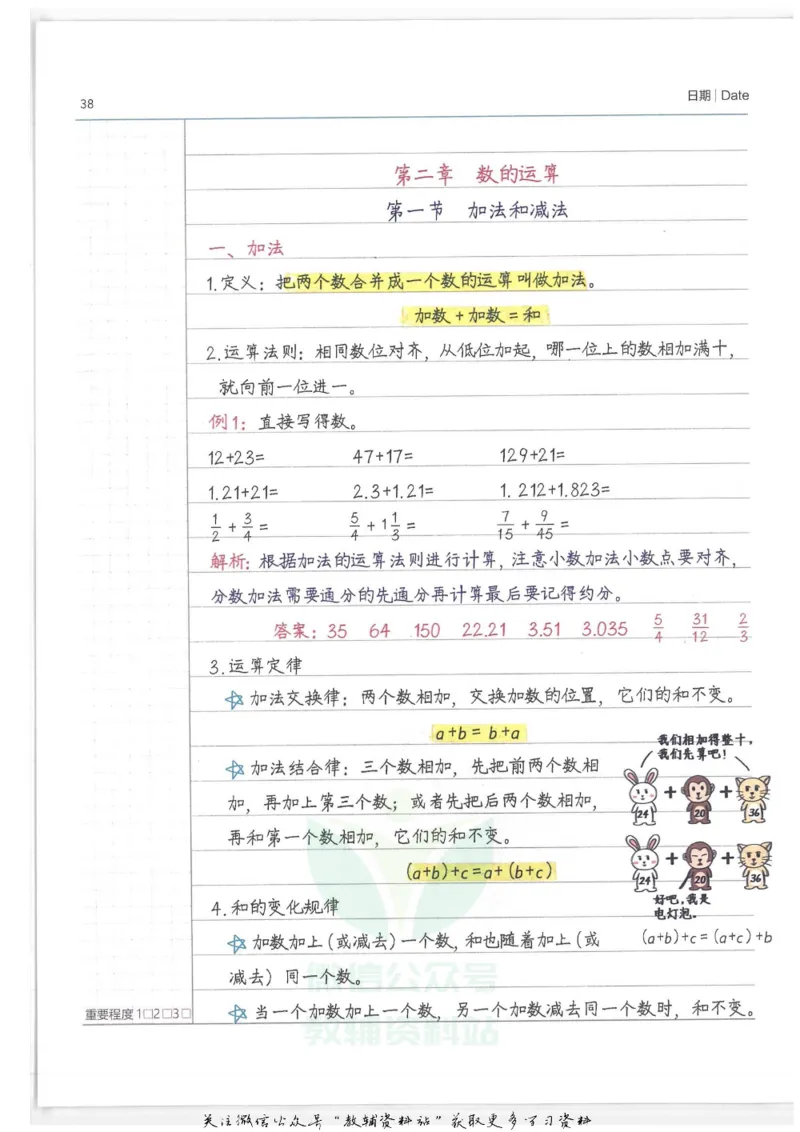 38
日期|Date
第二章 数的运算
第一节 加法和减法
一、加法
1.定义：把两个数合并成一个数的运算叫做加法。
加数+加数=和
2.运算法则：相同数位对齐，从低位加起，哪一位上的数相加满十，
就向前一位进一。
例1：直接写得数。
12+23= 47+17= 129+21=
1.21+21= 2.3+1.21= 1.212+1.823=
1/2+3/4= 5/4+1 1/3= 7/15+9/45=
解析：根据加法的运算法则进行计算，注意小数加法小数点要对齐，
分数加法需要通分的先通分再计算最后要记得约分。
答案：35 64 150 22.21 3.51 3.035 5/4 31/12 2/3
3.运算定律
加法交换律：两个数相加，交换加数的位置，它们的和不变。
a+b=b+a
我们相加得整十，
我们先算吧！
加法结合律：三个数相加，先把前两个数相
加，再加上第三个数；或者先把后两个数相加，
再和第一个数相加，它们的和不变。
(a+b)+c=a+(b+c)
24 + 20 + 36
24 + 20 + 36
好吧，我是
电灯泡。
(a+b)+c=(a+c)+b
4.和的变化规律
加数加上(或减去)一个数，和也随着加上(或
减去)同一个数。
当一个加数加上一个数，另一个加数减去同一个数时，和不变。
重要程度1□2□3□
微信公众号
教辅资料站
关注微信公众号"教辅资料站"获取更多学习资料